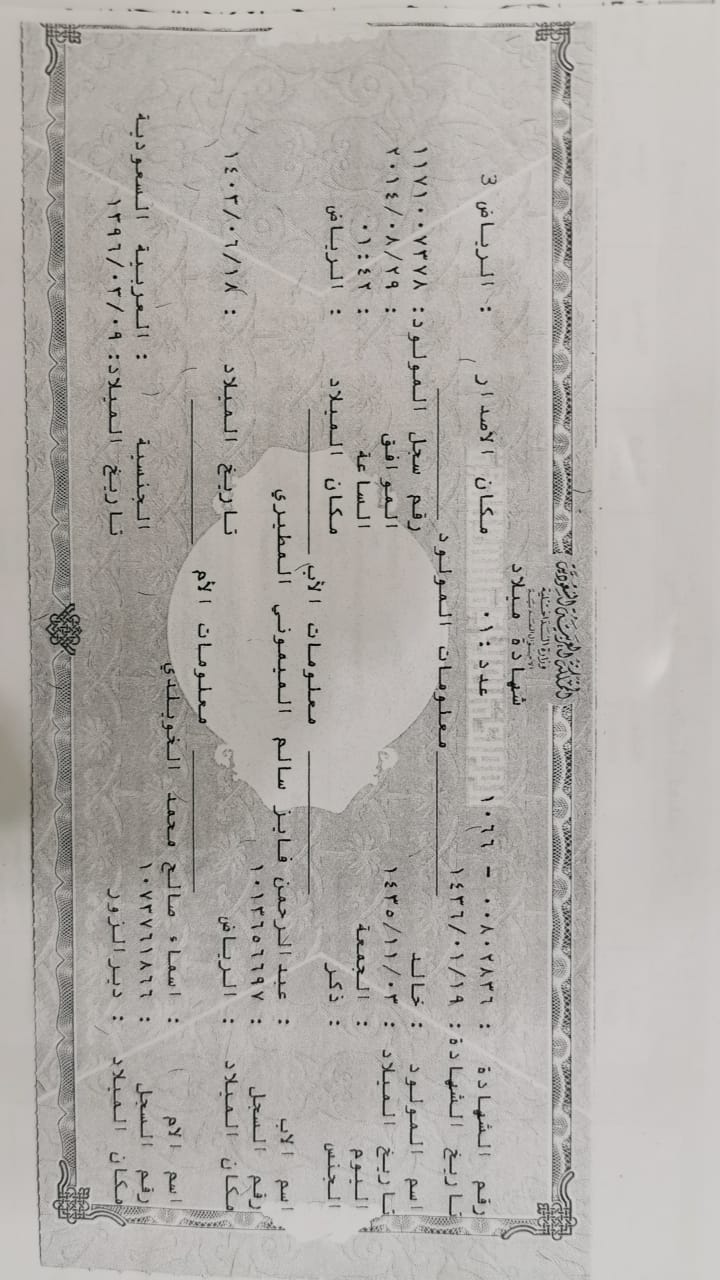 المملكة العربية السعودية
وزارة الداخلية
الأحوال المدنية
شهادة ميلاد
رقم الشهادة : ٠٠٨٠٢٨٣٦ - ١٠٦٦ عدد :٠١ مكان الأصدار : الرياض 3
تاريخ الشهادة: ١٤٣٦/٠١/١٩
معلومات المولود
اسم المولود : خالد رقم سجل المولود: ١١٧١٠٠٧٣٧٨
تاريخ الميلاد : ١٤٣٥/١١/٠٣ الموافق : ٢٠١٤/٠٨/٢٩
اليوم : الجمعة الساعة : ٠١:٤٢
الجنس : ذكر مكان الميلاد : الرياض
معلومات الأب
اسم الاب : عبدالرحمن فايز سالم الميموني المطيري
رقم السجل : ١٠١٣٦٥٦٦٩٧
مكان الميلاد : الرياض تاريخ الميلاد : ١٤٠٣/٠٦/١٨
معلومات الأم
اسم الام : اسماء صالح محمد الخويلدي
رقم السجل : ١٠٧٣٧٦١٨٦٦ الجنسية : العربية السعودية
مكان الميلاد : ديرالزور تاريخ الميلاد: ١٣٩٦/٠٣/٠٩